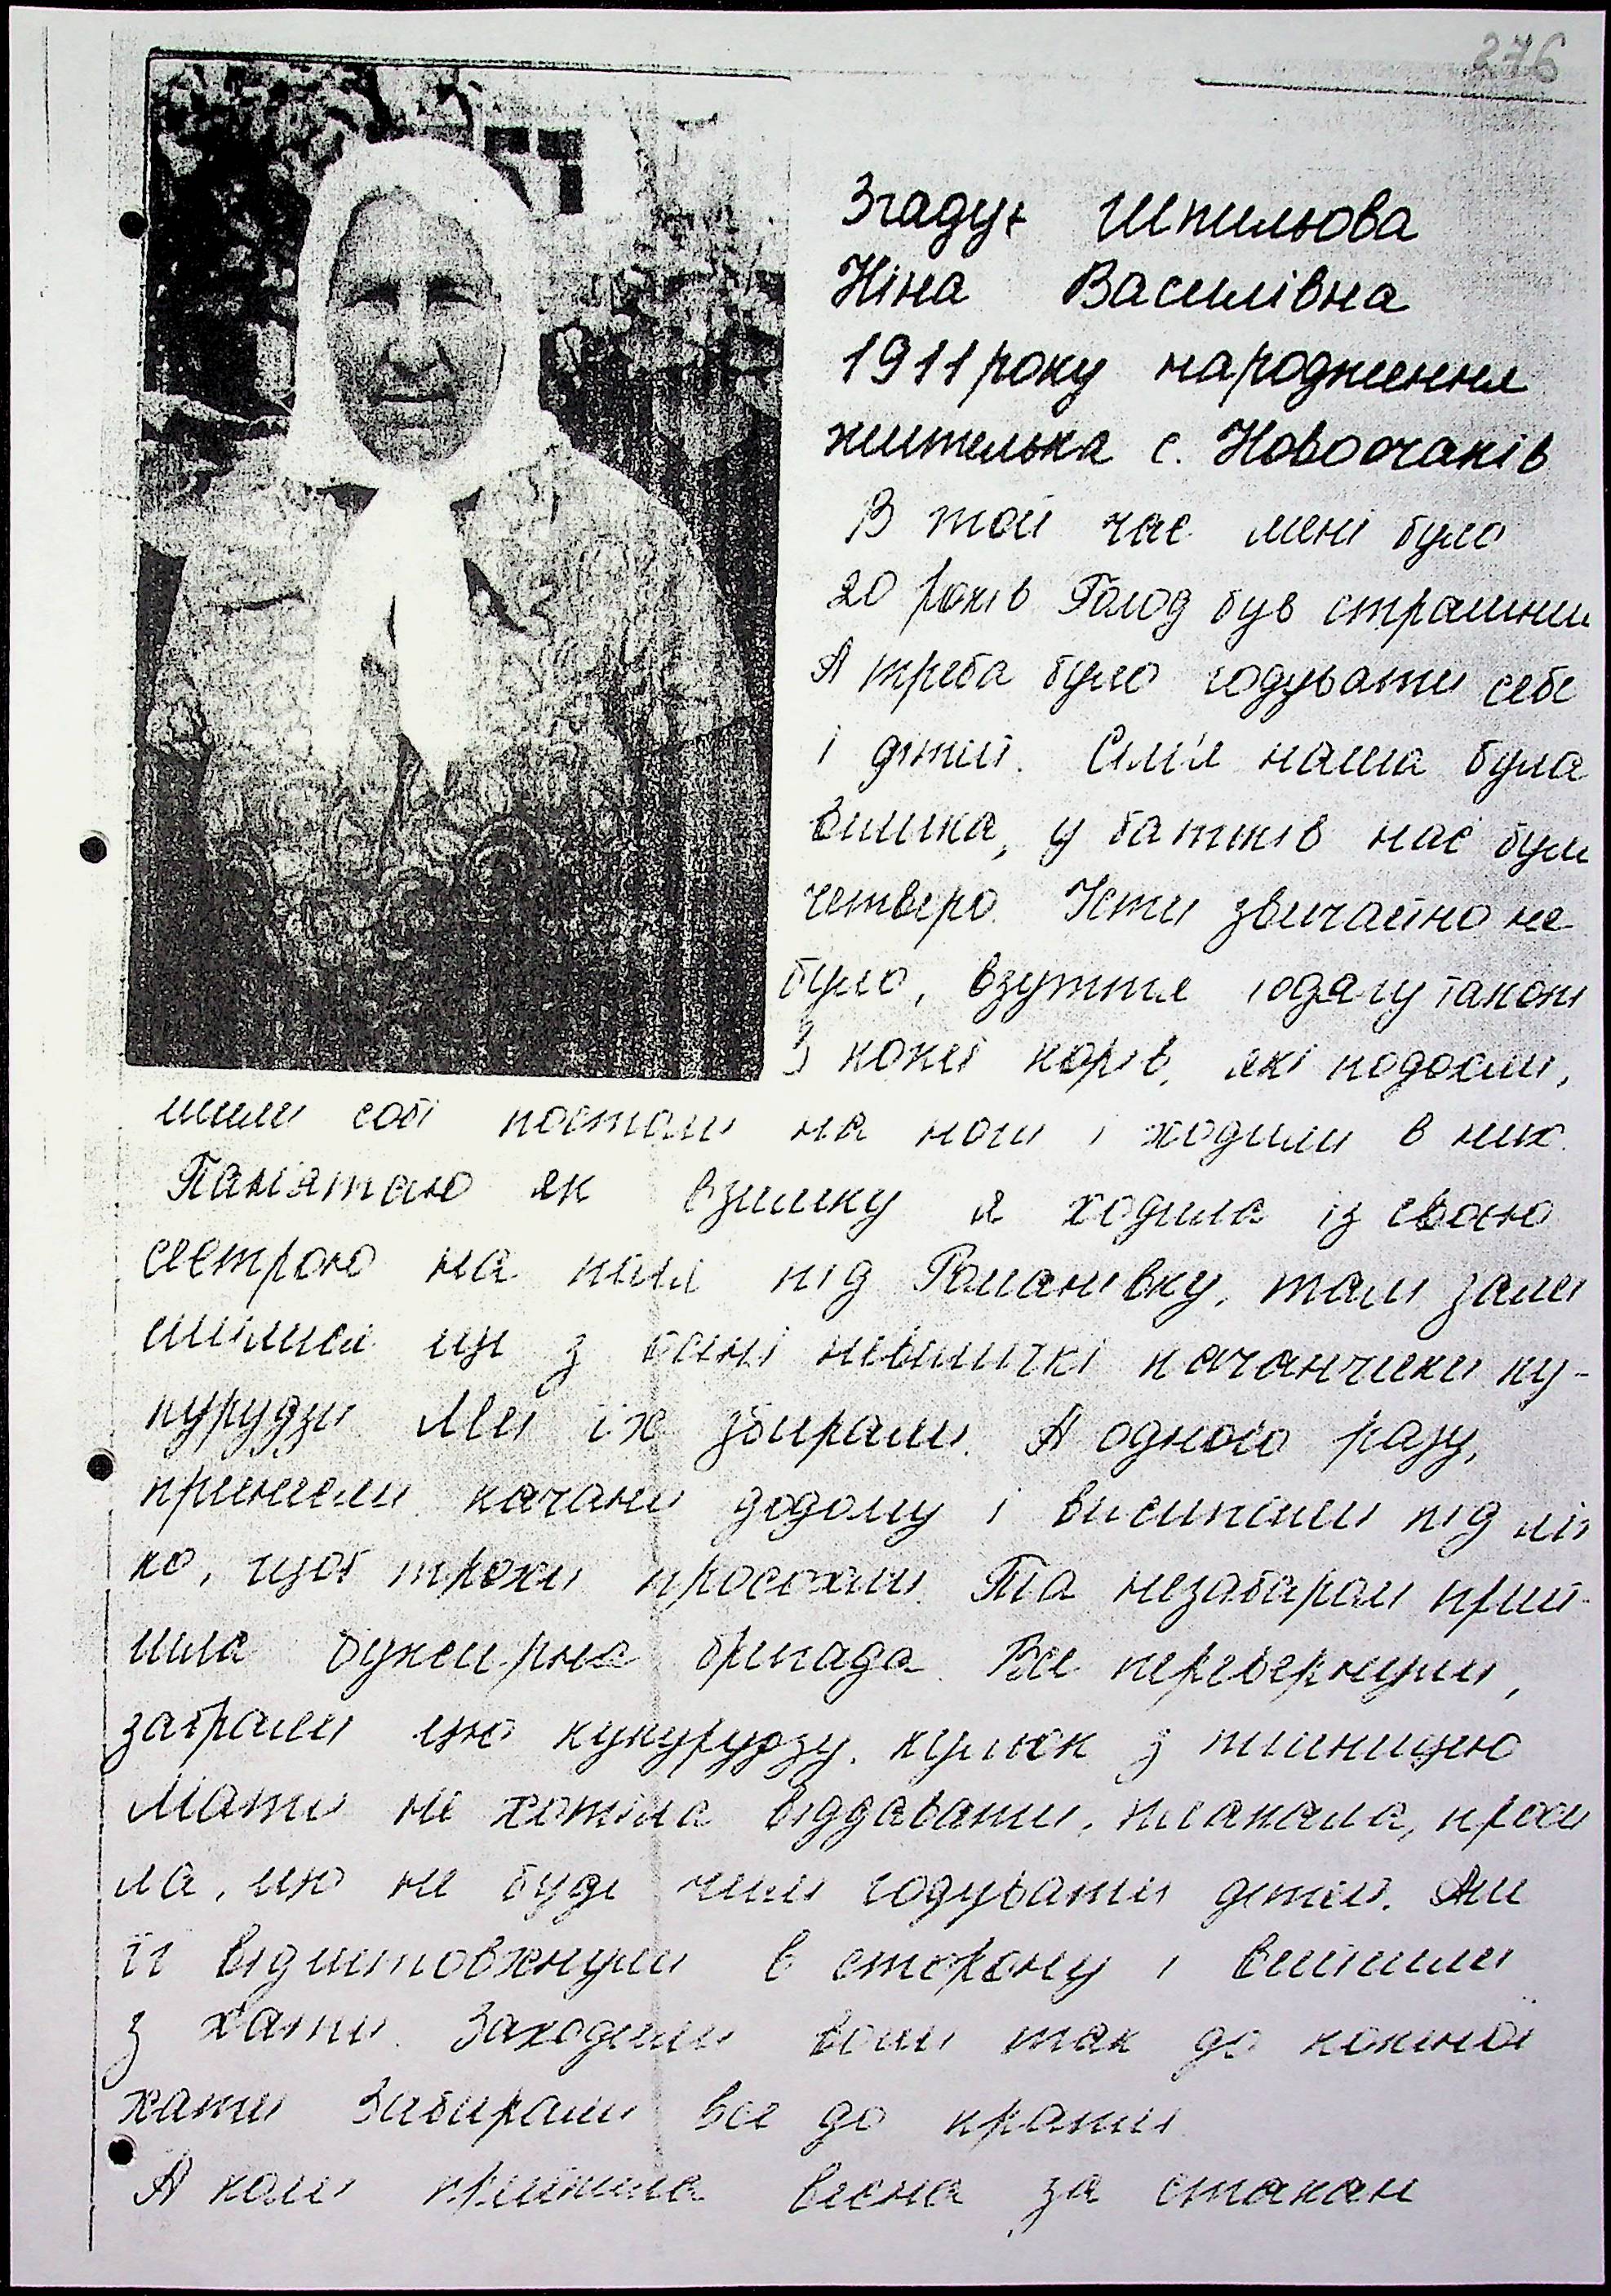 276
Згадує Шпильова
Ніна Василівна
1911 року народження
жителька с. Новоочаків
В той час мені було
20 років Голод був страшни
А треба було годувати себе
і дітей. Сім'я наша була
велика, у батьків нас були
четверо. Їсти звичайно не
було, взуття і одягу також
З кожі корів, які подохли,
шили собі постоли на ноги і ходили в них.
Пам'ятаю як взимку я ходила із своєю
сестрою на поля під Романівку, там зали
шилися ще з осені невеличкі качанчики ку-
курудзи Ми їх збирали. А одного разу,
принесли качани додому і висипали під ліж
ко, щоб трохи просохли. Та незабаром прий-
шла буксирна бригада. Все перевернули,
забрали цю кукурудзу, кульок з пшеницею
Мати не хотіла віддавати, плакала, проси
ла, що не буде чим годувати дітей. Але
її відштовхнули в сторону і вийшли
з хати. Заходили вони так до кожної
хати Забирали все до крапки
А коли прийшла весна за стакан